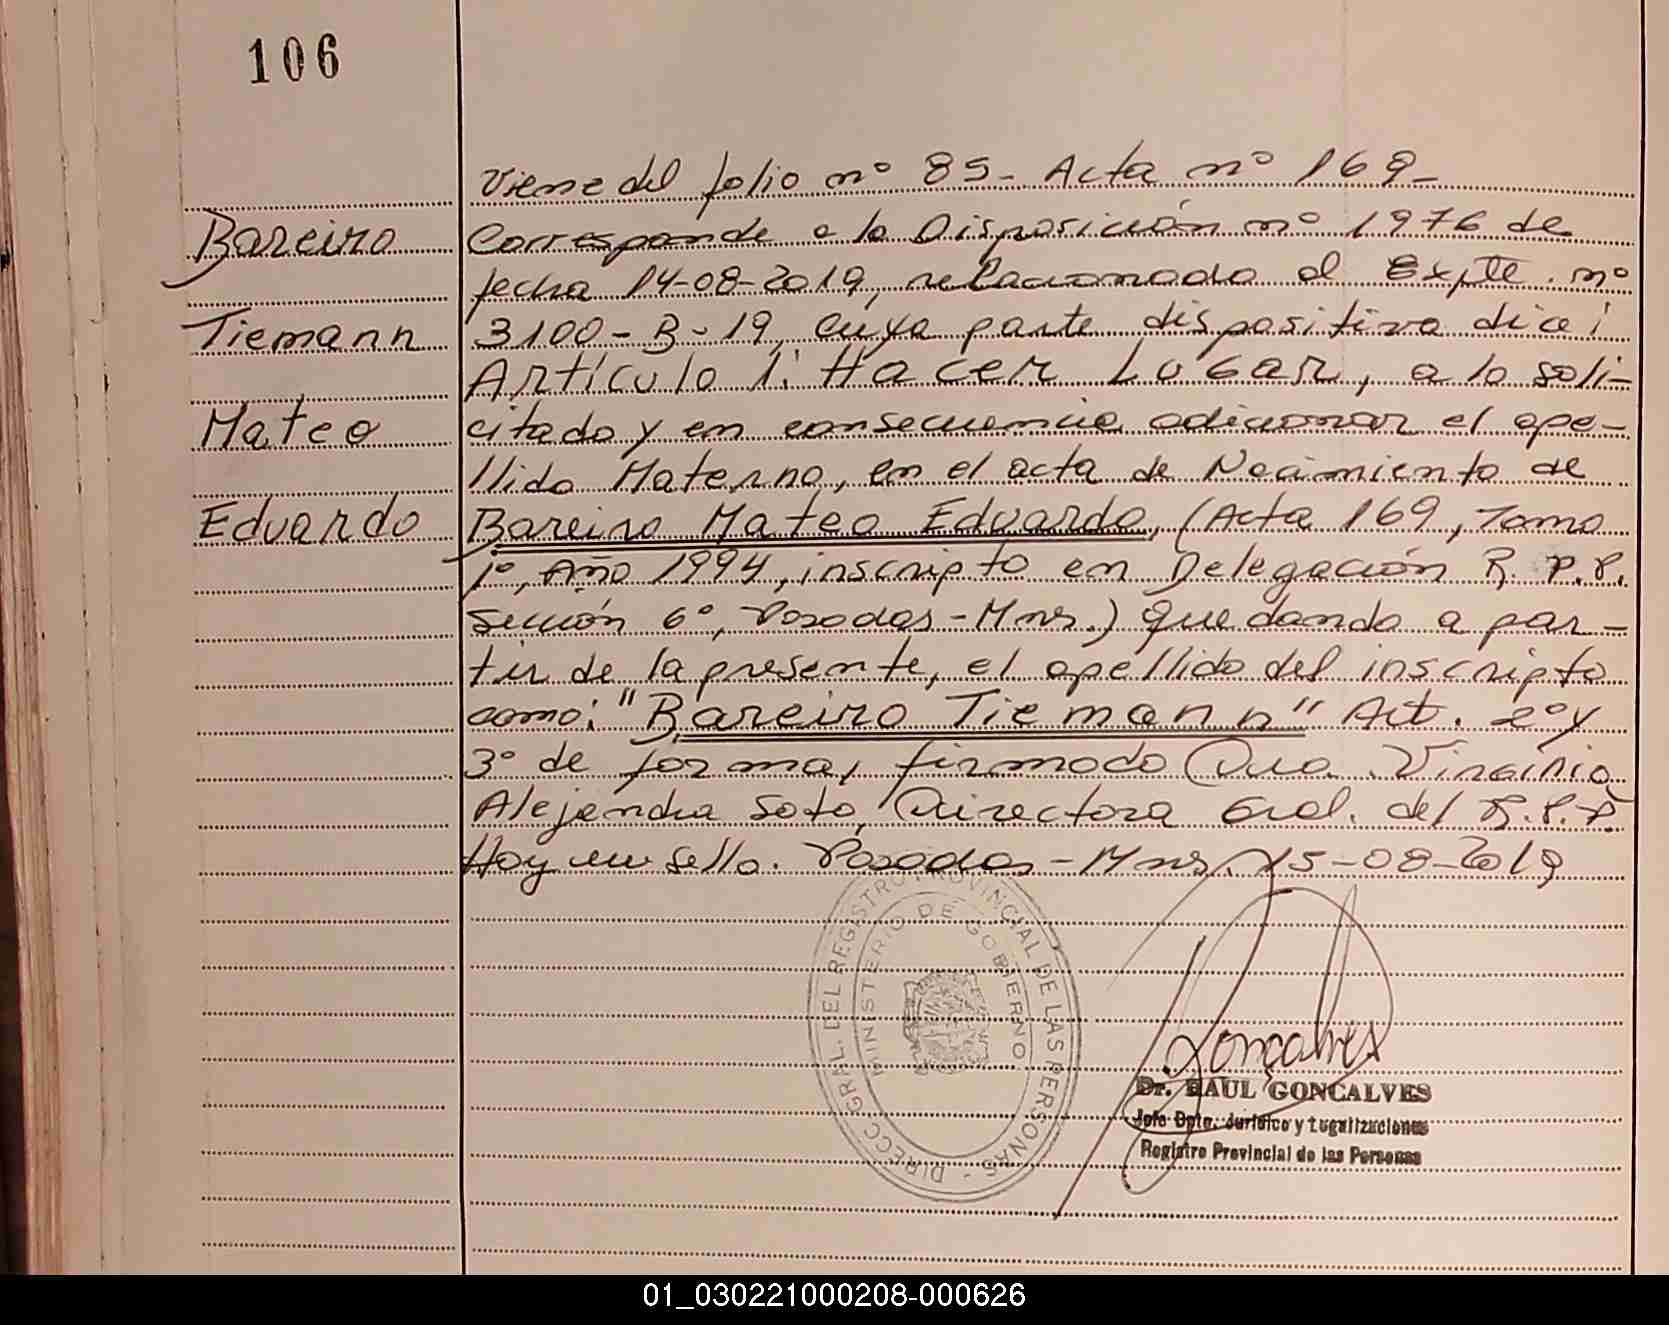 106
Viene del folio nº 85- Acta nº 169-
Bareiro
Corresponde a la Disposición nº 1976 de
fecha 14-08-2019, relacionado al Expte. nº
Tiemann
3100-B-19, cuya parte dispositiva dice:
Artículo 1: Hacer Lugar, a lo soli-
Mateo
citado y en consecuencia adicionar el ape-
llido Materno, en el acta de Nacimiento de
Eduardo
Bareiro Mateo Eduardo, (Acta 169, Tomo
1º, Año 1994, inscripto en Delegación R.P.P.
Sección 6º, Posadas-Mnes.) quedando a par-
tir de la presente, el apellido del inscripto
como: "Bareiro Tiemann" Art. 2º y
3º de forma, firmado Dra. Virginia
Alejandra Soto, Directora Gral. del R.P.P.
Hay un sello. Posadas-Mnes. 15-08-2019
DIRECC. GRAL. DEL REGISTRO PROVINCIAL DE LAS PERSONAS -
MINISTERIO DE GOBIERNO
Gonçalves
Dr. RAUL GONCALVES
Jefe Dpto. Jurídico y Legalizaciones
Registro Provincial de las Personas
01_030221000208-000626